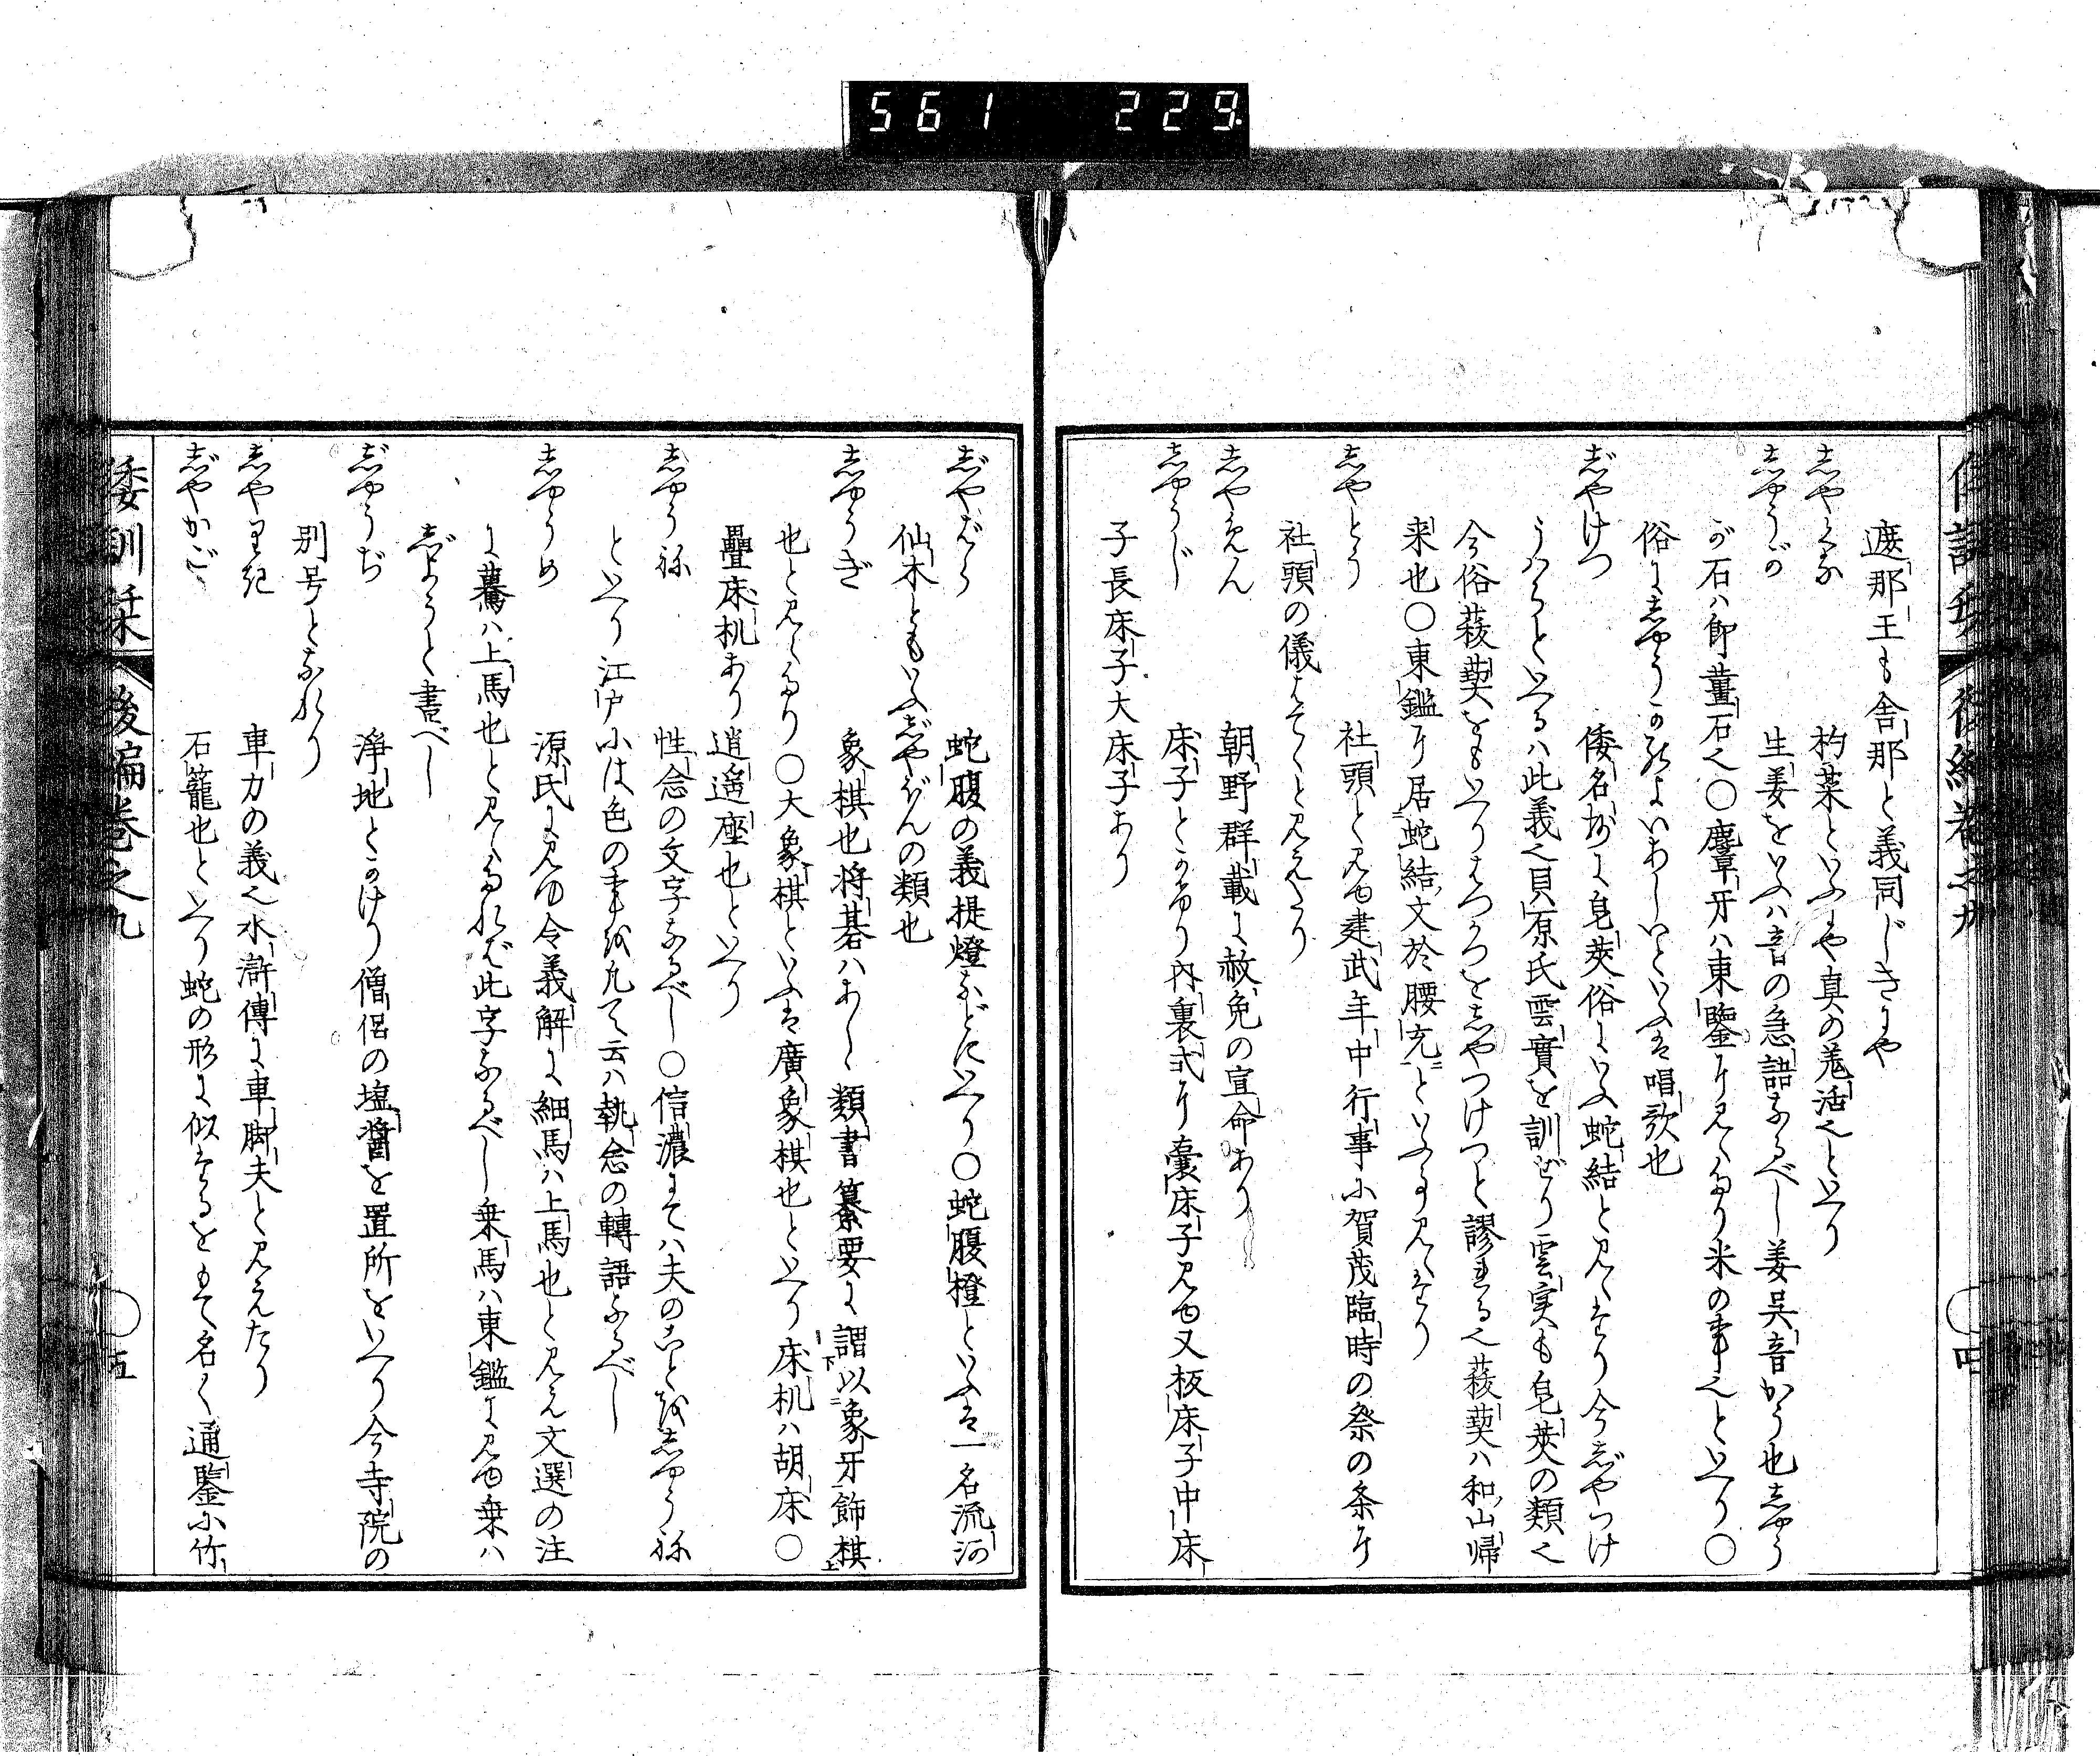 561 229
遮那王も舎那と義同じきにや
しやくな 杓菜といふにや真の羗活也といへり
しゆうが 生姜をいふハ音の急語なるべし姜呉音かう也しゆう
が石ハ即薑石也〇麞牙ハ東鑒に見えたり米の事也といへり〇
俗にしゆうかのねよいあしいといふは唱歌也
じやけつ 倭名抄に皂莢俗にいふ蛇結と見えたり今じやつけ
うハらといへるハ此義也貝原氏雲實を訓ぜり雲実も皂莢の類也
今俗菝葜をもいへりはつかつをしやつけつと謬れる也菝葜ハ和山帰
来也〇東鑑に居蛇結文於腰充といふ事見えたり
しやとう 社頭と見ゆ建武年中行事に賀茂臨時の祭の条に
社頭の儀はてゝと見えたり
しやめん 朝野群載に赦免の宣命あり
しゆうじ 床子とかけり内裏式に嚢床子見ゆ又板床子中床
子長床子大床子あり
倭訓栞 後編巻之九 〇四
じやばら 蛇腹の義提燈などにいへり〇蛇腹橙といふは一名流河
仙木ともいふじやがんの類也
しゆうぎ 象棋也将碁ハあしゝ類書纂要に謂以象牙飾棋
也と見えたり〇大象棋といふは廣象棋也といへり床机ハ胡床〇
疊床机あり逍遥座也といへり
しゆうね 性念の文字なるべし〇信濃にてハ夫のことをしゆうね
といへり江戸には色の事を凡て云ハ執念の轉語なるべし
しゆうめ 源氏に見ゆ令義解に細馬ハ上馬也と見え文選の注
に驀ハ上馬也と見えたれバ此字なるべし乗馬ハ東鑑に見ゆ乗ハ
じようと書べし
じゆうぢ 浄地とかけり僧侶の塩醤を置所をいへり今寺院の
別号となれり
しやりき 車力の義也水滸傳に車脚夫と見えたり
じやかご 石籠也といへり蛇の形に似たるをもて名く通鑒に竹
倭訓栞 後編巻之九 〇五